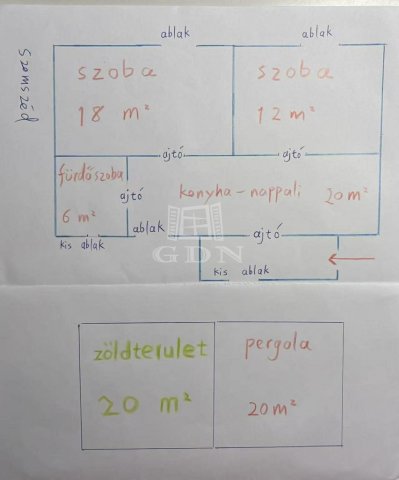 ablak
ablak
Szomszéd
szoba
szoba
18 m²
12 m²
ajtó
ajtó
fürdőszoba
ajtó
konyha-nappali 20 m²
6 m²
ablak
ajtó
kis ablak
GDN
kis ablak
zöldterulet
pergola
20 m²
20 m²